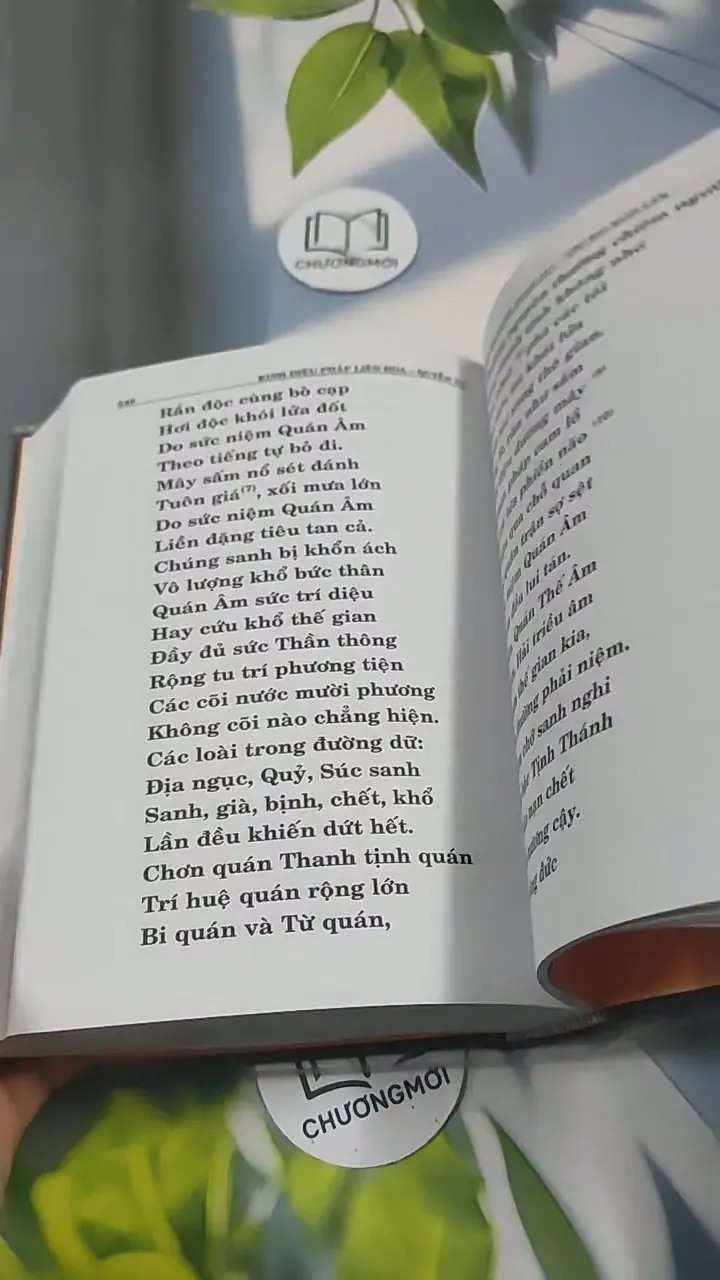 CHƯƠNGMỚI
KINH DIỆU PHÁP LIÊN HOA - QUYỂN
Rắn độc cùng bò cạp
Hơi độc khói lửa đốt
Do sức niệm Quán Âm
Theo tiếng tự bỏ đi.
Mây sấm nổ sét đánh
Tuôn giá(7), xối mưa lớn
Do sức niệm Quán Âm
Liền đặng tiêu tan cả.
Chúng sanh bị khổn ách
Vô lượng khổ bức thân
Quán Âm sức trí diệu
Hay cứu khổ thế gian
Đầy đủ sức Thần thông
Rộng tu trí phương tiện
Các cõi nước mười phương
Không cõi nào chẳng hiện.
Các loài trong đường dữ:
Địa ngục, Quỷ, Súc sanh
Sanh, già, bịnh, chết, khổ
Lần đều khiến dứt hết.
Chơn quán Thanh tịnh quán
Trí huệ quán rộng lớn
Bi quán và Từ quán,
không như
các tội
lửa
thế gian.
như sấm
mây
cam lồ
phiền não
qua chỗ quan
trận sợ sệt
niệm Quán Âm
lui tán.
Quán Thế Âm
Hải triều âm
thế gian kia,
phải niệm.
chớ sanh nghi
Tịnh Thánh
nạn chết
cậy.
đức
CHƯƠNGMỚI